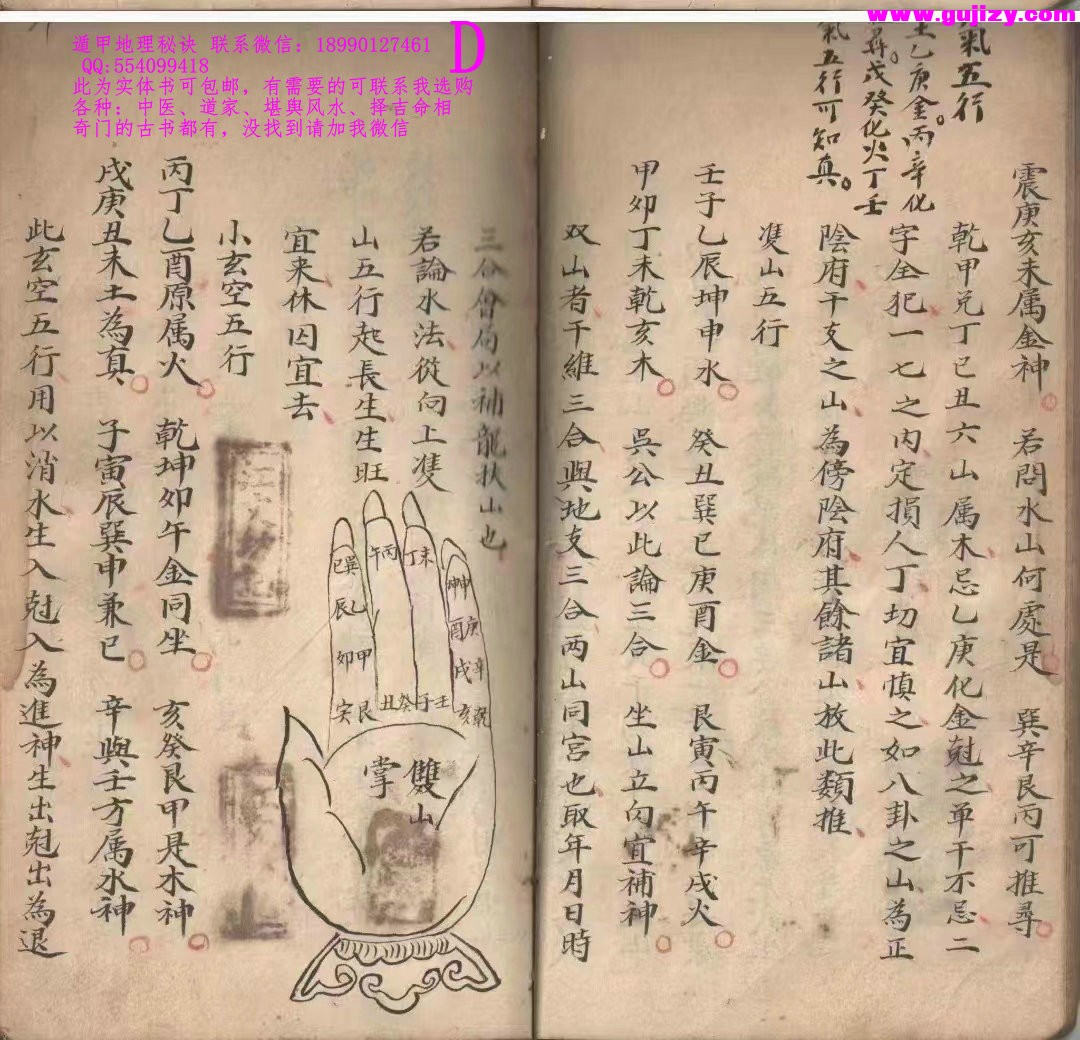 www.gujizy.com
遁甲地理秘诀 联系微信：18990127461
QQ:554099418
此为实体书可包邮，有需要的可联系我选购
各种：中医、道家、堪舆风水、择吉命相
奇门的古书都有，没找到请加我微信
D
氣五行
乙庚金。丙辛化
尋。戊癸化火丁壬
氣五行可知真。
震庚亥未属金神 若問水山何處是 巽辛艮丙可推尋
乾甲兑丁巳丑六山属木忌乙庚化金尅之单干不忌二
字全犯一七之内定損人丁切宜慎之如八卦之山為正
陰府干支之山為傍陰府其餘諸山放此類推
雙山五行
壬子乙辰坤申水 癸丑巽巳庚酉金 艮寅丙午辛戌火
甲卯丁未乾亥木 吳公以此論三合 坐山立向宜補神
双山者干維三合與地支三合两山同宮也取年月日時
三合會局以補龍扶山也
若論水法從向上雙
山五行起長生生旺
宜来休囚宜去
小玄空五行
丙丁乙酉原属火 乾坤卯午金同坐 亥癸艮甲是木神
戌庚丑未土為真 子寅辰巽申兼巳 辛與壬方属水神
此玄空五行用以消水生入尅入為進神生出尅出為退
巳巽
午丙
丁未
坤申
辰乙
酉庚
卯甲
戌辛
寅艮
丑癸
子壬
亥乾
雙山
掌